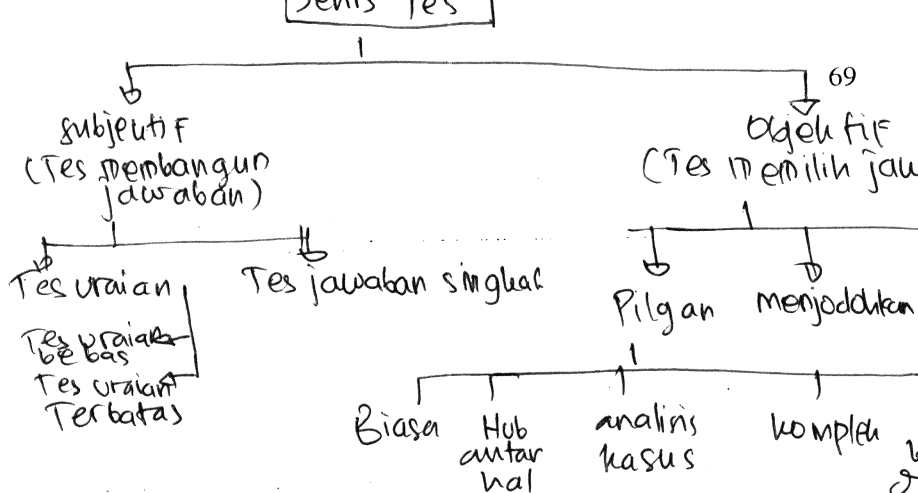 Jenis Tes
69
Subjektif
(Tes membangun
jawaban)
Objektif
(Tes memilih jaw
Tes uraian
Tes jawaban singkat
Pilgan
menjodohkan
Tes uraian
bebas
Tes uraian
Terbatas
Biasa
Hub
antar
hal
analisis
kasus
komplek